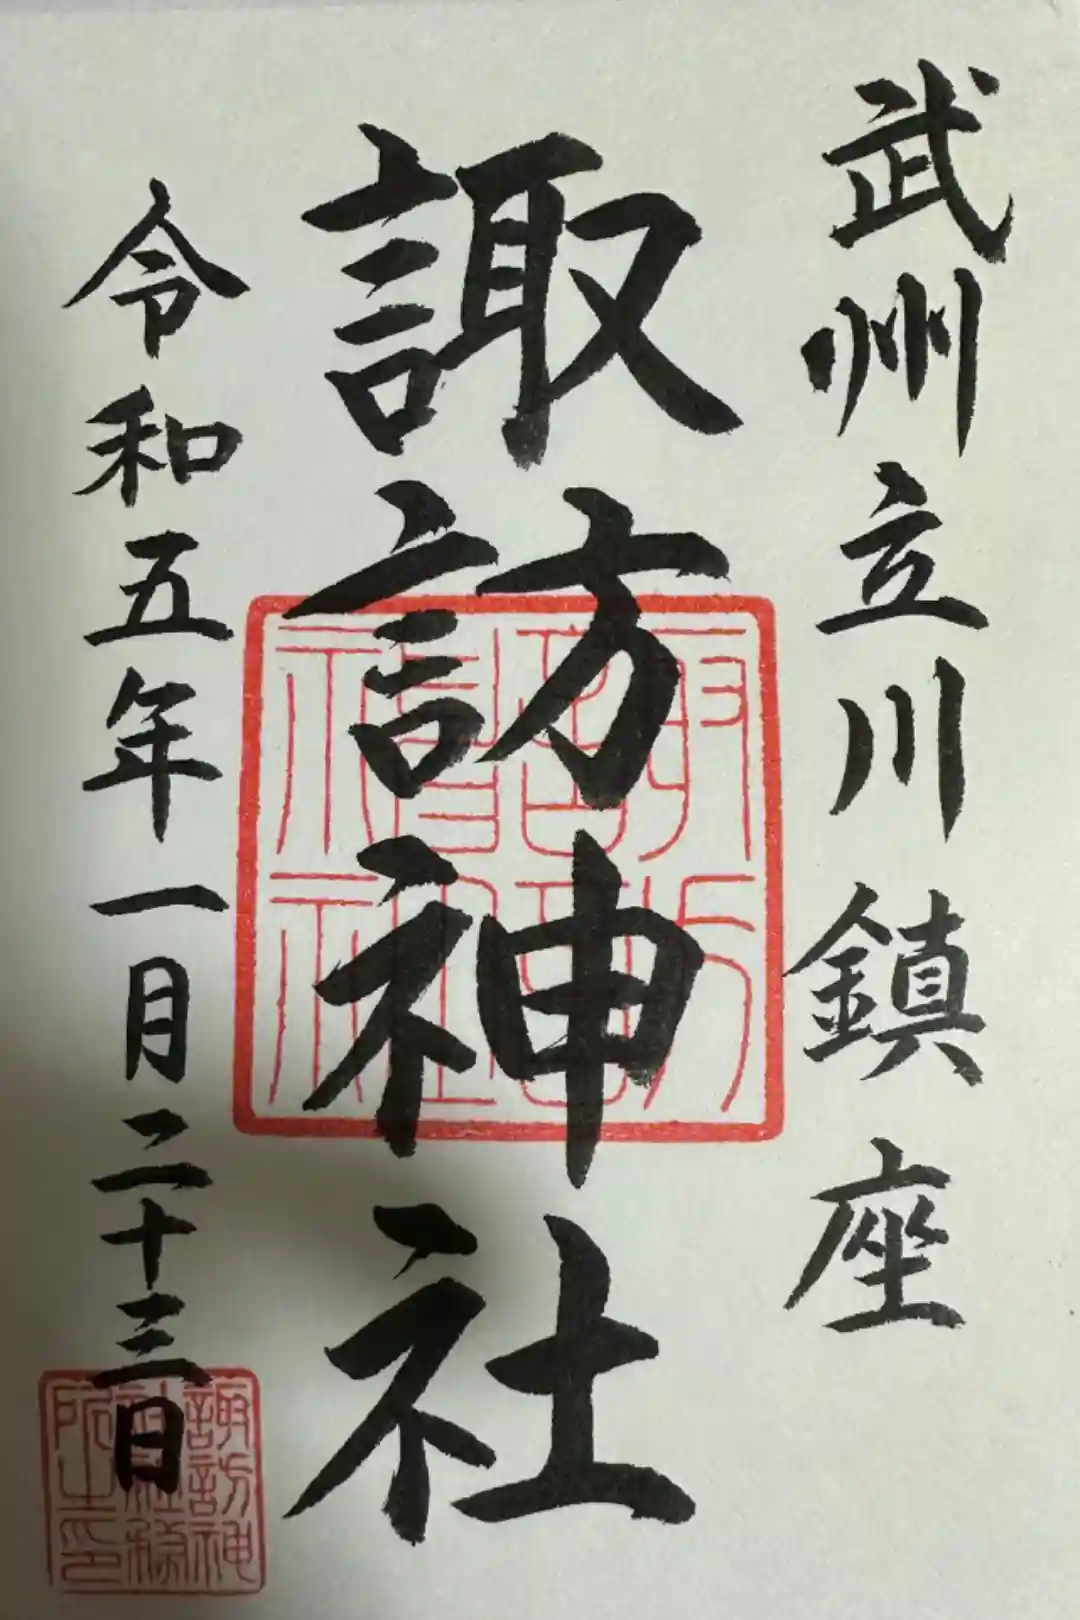 武州立川鎮座
諏訪神社
令和五年一月二十三日
諏訪神社
諏訪神
社務
所之印